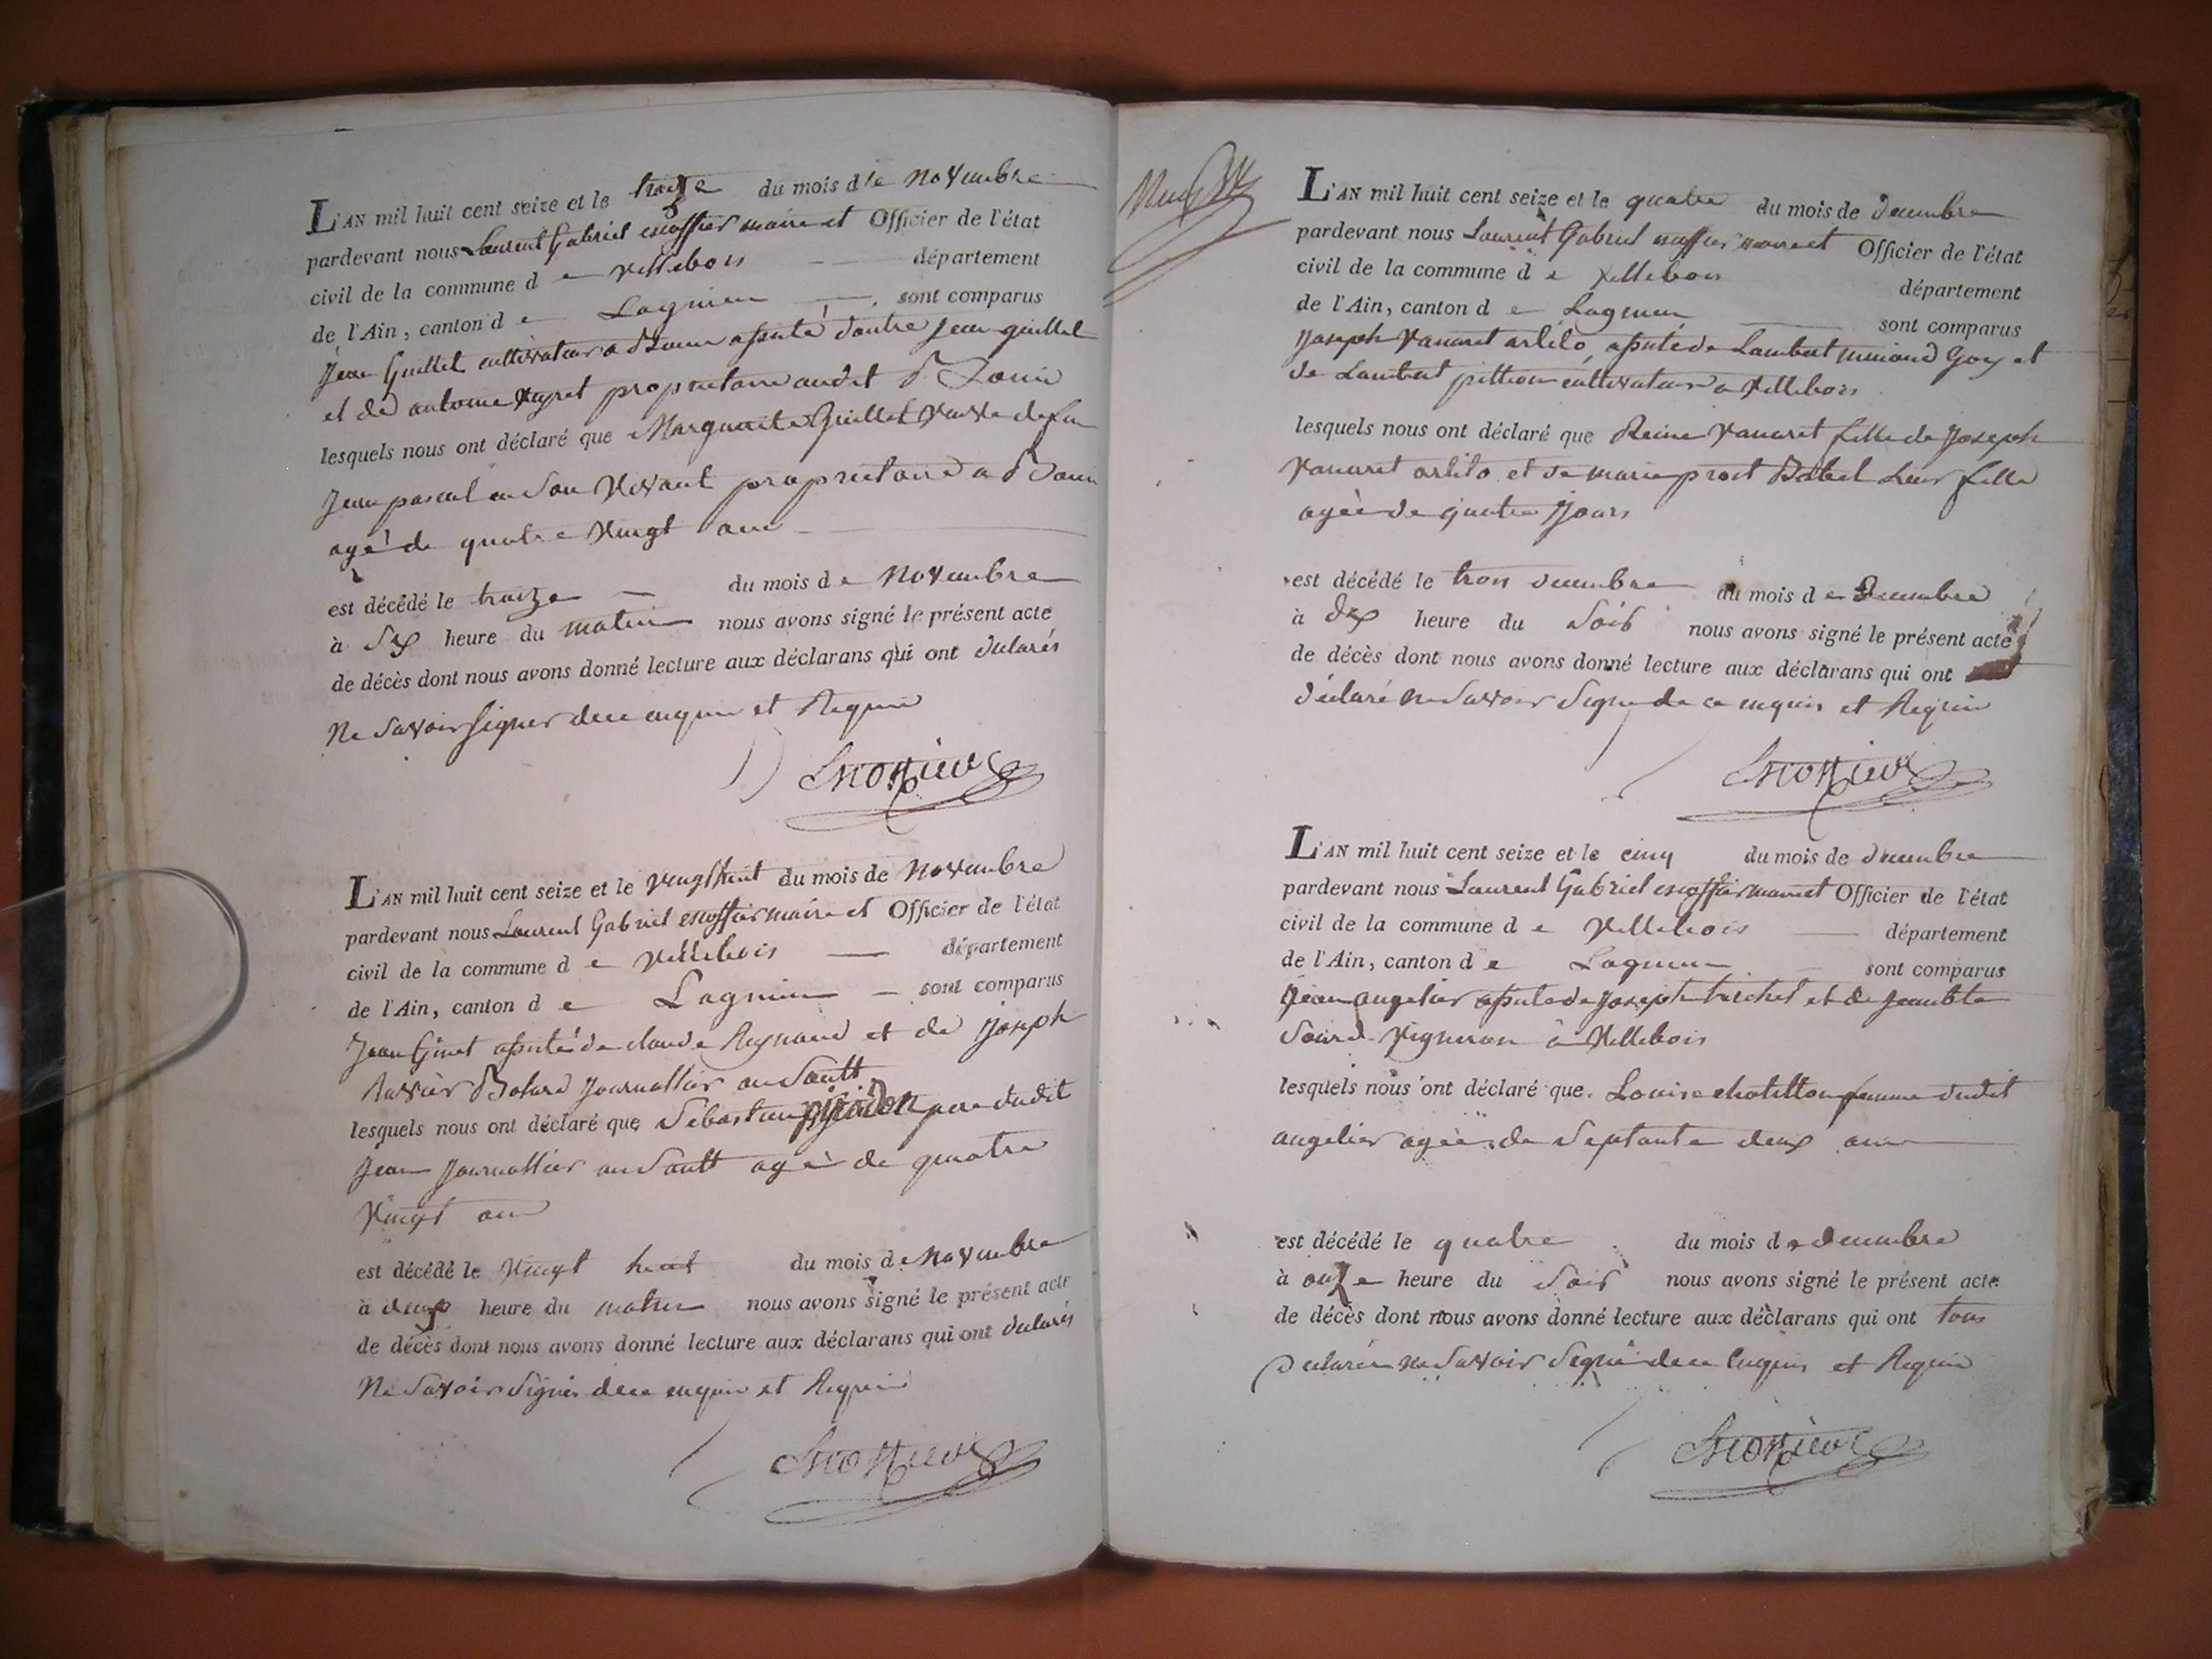 L'AN mil huit cent seize et le treize du mois de Novembre
pardevant nous Laurent Gabriel escoffier maire et Officier de l'état
civil de la commune de Villebois département
de l'Ain, canton de Lagnieu sont comparus
Jean Guillet cultivateur a assisté d'autre Jean guillet
et de antoine proprietaire audit
lesquels nous ont déclaré que Marguerite Guillet veuve de feu
Jean pascal en son vivant proprietaire a
agé de quatre vingt ans
est décédé le treize du mois de Novembre
à six heure du matin nous avons signé le présent acte
de décès dont nous avons donné lecture aux déclarans qui ont declarés
Ne savoir signer de ce enquis et Requis
Escoffier
L'AN mil huit cent seize et le vingt huit du mois de Novembre
pardevant nous Laurent Gabriel escoffier maire et Officier de l'état
civil de la commune de Villebois département
de l'Ain, canton de Lagnieu sont comparus
Jean assisté de claude Reynaud et de Joseph
Xavier Journallier au Sault
lesquels nous ont déclaré que Sebastien pere dudit
Jean Journallier au Sault agé de quatre
Vingt ans
est décédé le Vingt huit du mois de Novembre
à deux heure du matin nous avons signé le présent acte
de décès dont nous avons donné lecture aux déclarans qui ont declarés
Ne savoir signer de ce enquis et Requis
Escoffier
L'AN mil huit cent seize et le quatre du mois de decembre
pardevant nous Laurent Gabriel escoffier maire et Officier de l'état
civil de la commune de Villebois département
de l'Ain, canton de Lagnieu sont comparus
Joseph Vanaret assisté de Lambert Goy et
de Lambert cultivateur a Villebois
lesquels nous ont déclaré que Reine Vanaret fille de Joseph
Vanaret et de marie prost Babel Leur fille
agée de quatre Jours
est décédé le trois decembre du mois de Decembre
à dix heure du soir nous avons signé le présent acte
de décès dont nous avons donné lecture aux déclarans qui ont
déclaré ne savoir signe de ce enquis et Requis
Escoffier
L'AN mil huit cent seize et le cinq du mois de decembre
pardevant nous Laurent Gabriel escoffier maire et Officier de l'état
civil de la commune de Villebois département
de l'Ain, canton de Lagnieu sont comparus
Jean angelier assisté de Joseph trichet et de Jean bte
Sourd Vigneron à Villebois
lesquels nous ont déclaré que Louise chatillon femme dudit
angelier agée de septante deux ans
est décédé le quatre du mois de decembre
à onze heure du soir nous avons signé le présent acte
de décès dont nous avons donné lecture aux déclarans qui ont tous
Declarés ne savoir signé de ce Enquis et Requis
Escoffier